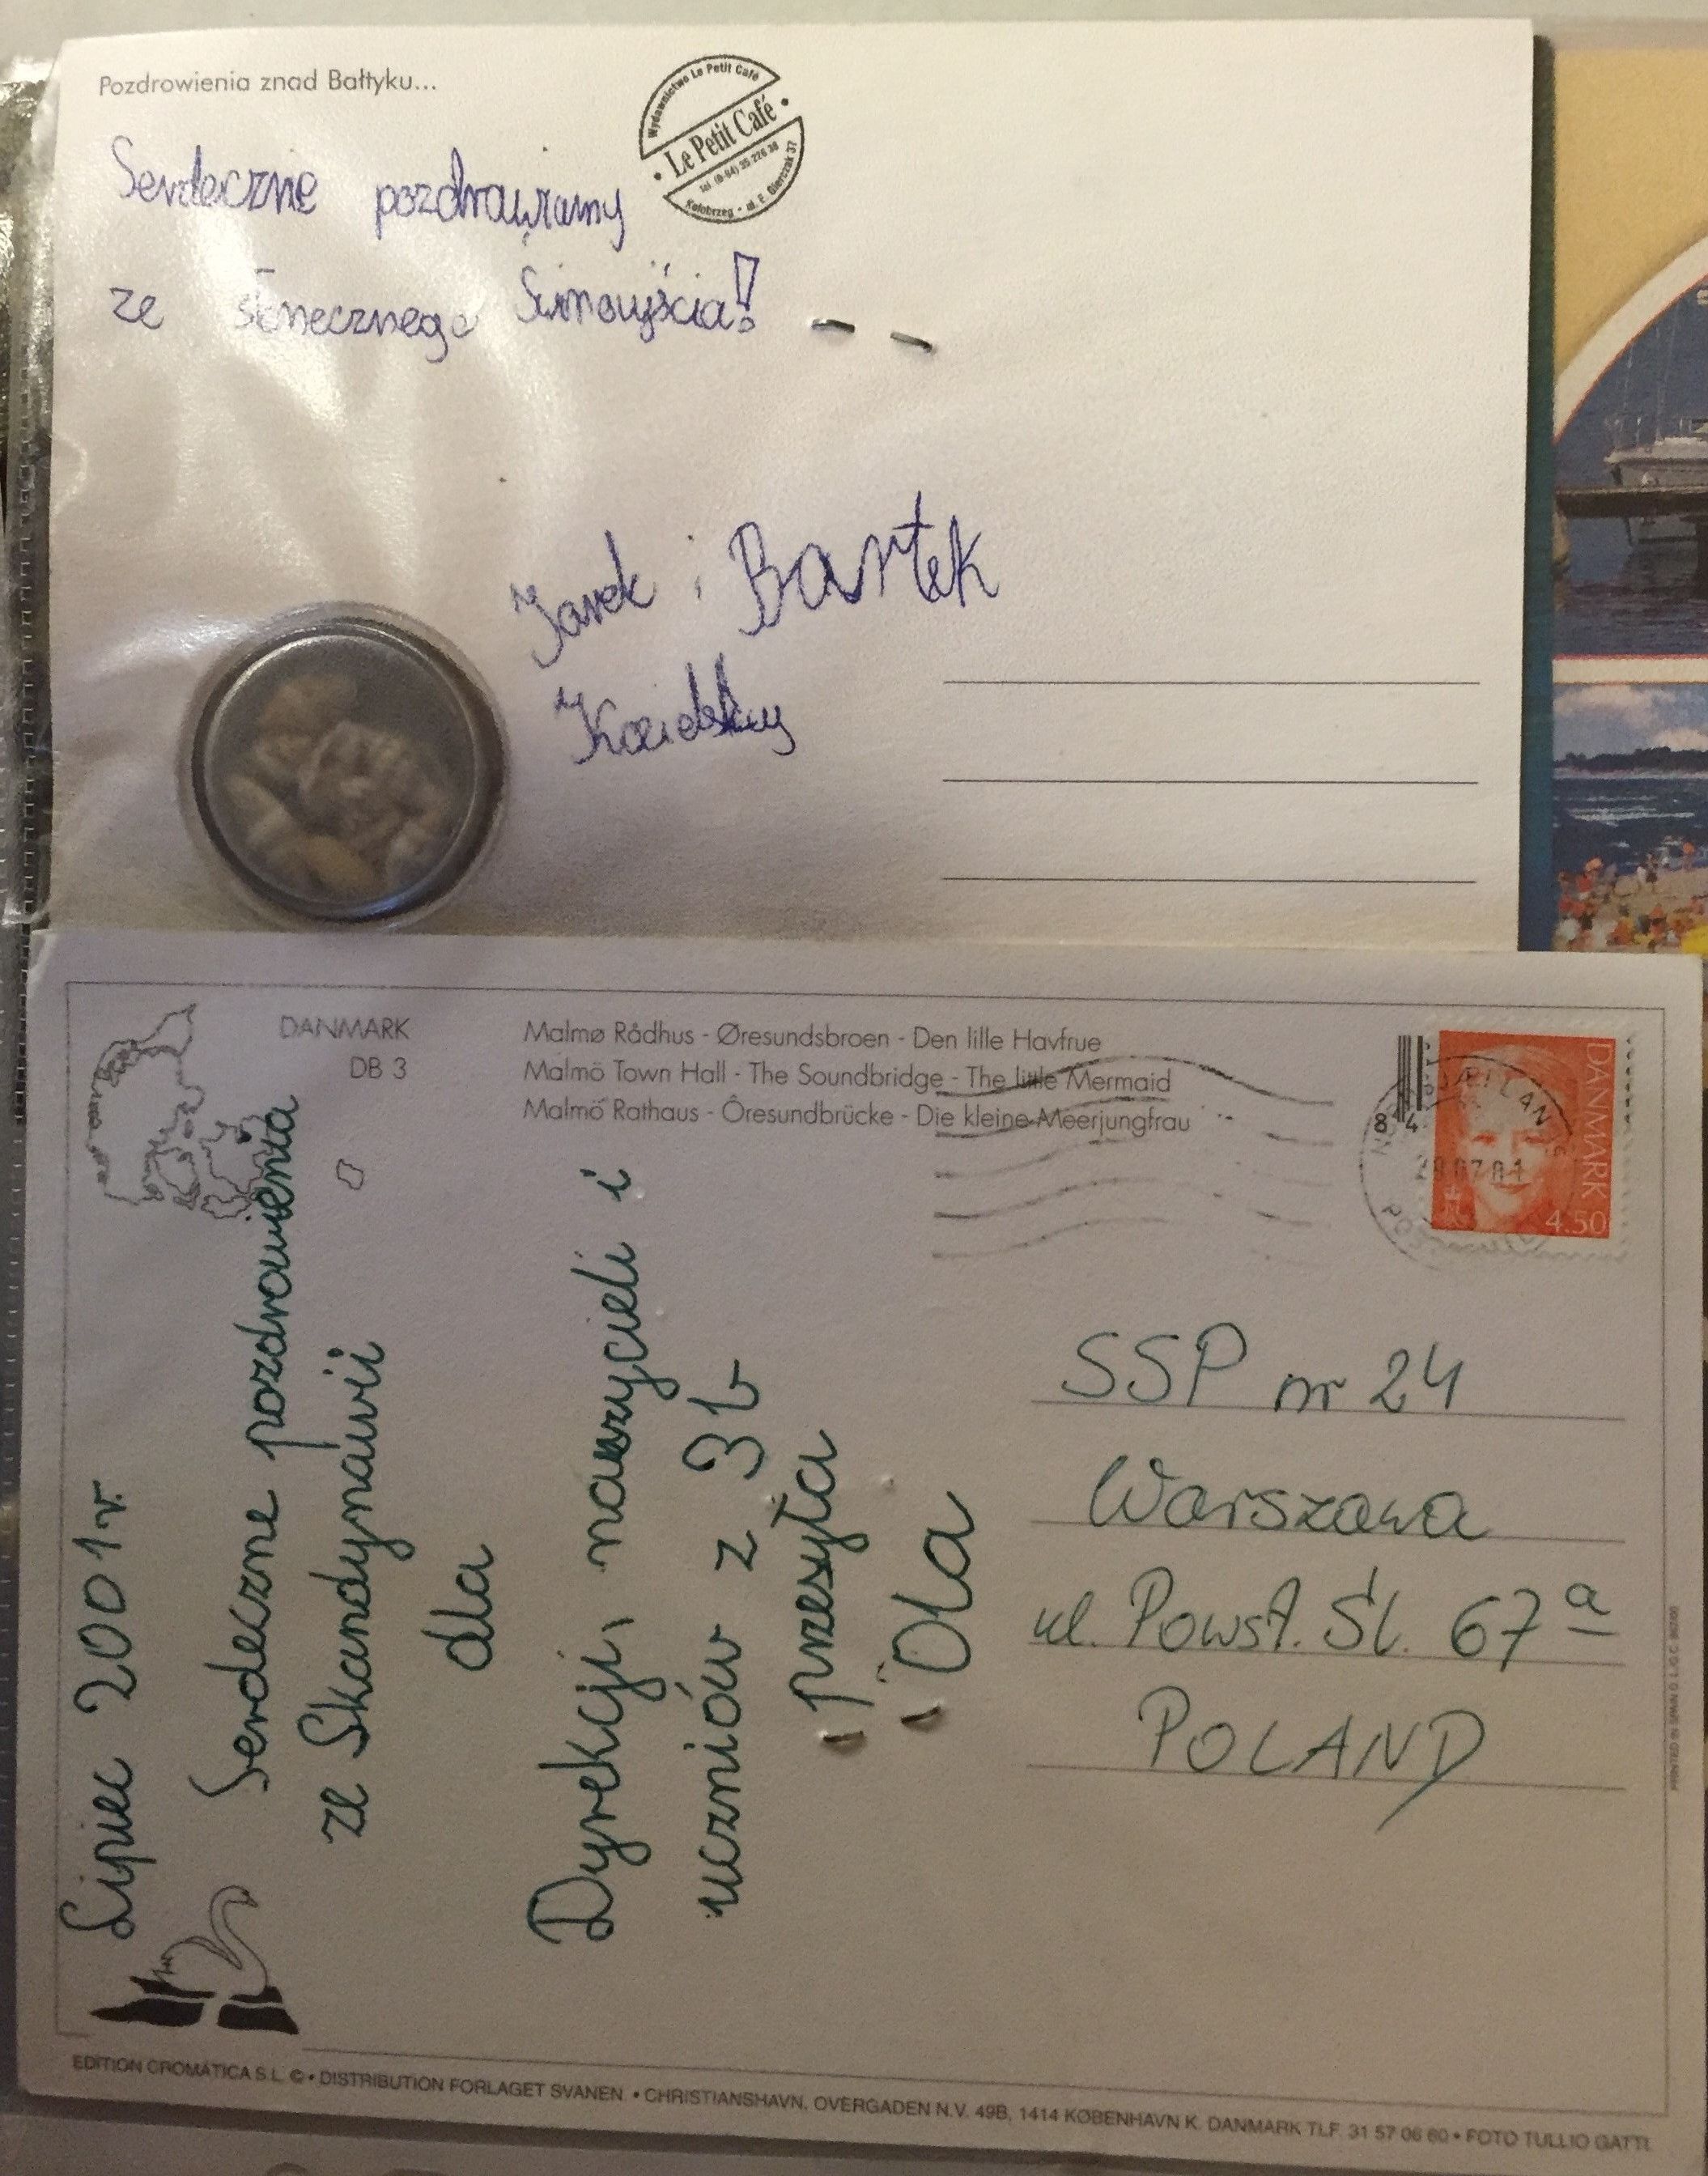 Pozdrowienia znad Bałtyku...
Wydawnictwo Le Petit Café
Le Petit Café
Kołobrzeg - ul. E. Gierczak 37
Serdecznie pozdrawiamy
ze słonecznego Świnoujścia!
Jarek i Bartek
DANMARK
DB 3
Malmø Rådhus - Øresundsbroen - Den lille Havfrue
Malmö Town Hall - The Soundbridge - The little Mermaid
Malmö Rathaus - Öresundbrücke - Die kleine Meerjungfrau
DANMARK
4.50
84
Lipiec 2001 r.
Serdeczne pozdrowienia
ze Skandynawii
dla
Dyrekcji, nauczycieli i
uczniów z 3b
przesyła
Ola
SSP nr 24
Warszawa
ul. Powst. Śl. 67a
POLAND
EDITION CROMATICA S.L. © • DISTRIBUTION FORLAGET SVANEN • CHRISTIANSHAVN, OVERGADEN N.V. 49B, 1414 KØBENHAVN K. DANMARK TLF. 31 57 06 60 • FOTO TULLIO GATTI